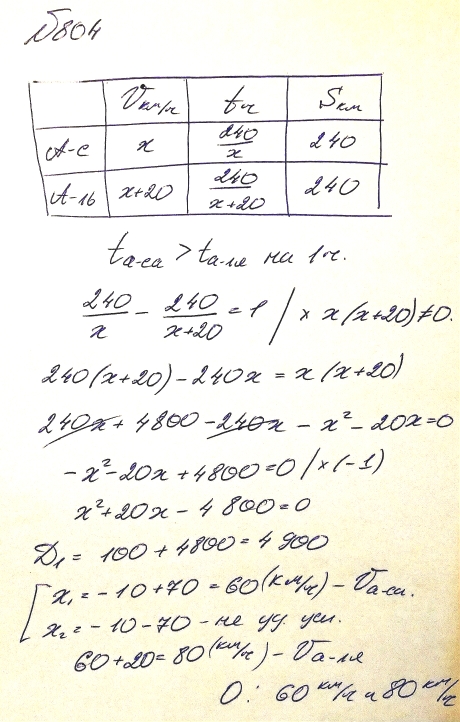 №804
V км/ч t ч S км
А-с x 240/x 240
А-ль x+20 240/(x+20) 240
tа-са > tа-ля на 1 ч.
240/x - 240/(x+20) = 1 / × x(x+20)≠0.
240(x+20) - 240x = x(x+20)
240x + 4800 - 240x - x² - 20x = 0
-x² - 20x + 4800 = 0 / ×(-1)
x² + 20x - 4800 = 0
D₁ = 100 + 4800 = 4900
x₁ = -10 + 70 = 60 (км/ч) - Vа-са.
x₂ = -10 - 70 - не уд. усл.
60 + 20 = 80 (км/ч) - Vа-ля
О: 60 км/ч и 80 км/ч